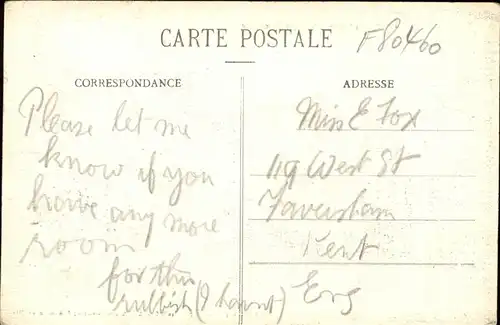 CARTE POSTALE
F80460
CORRESPONDANCE
Please let me
know if you
have any more
room
for this
rubbish (I havnt)
ADRESSE
Miss E Fox
119 West St
Faversham
Kent
Eng